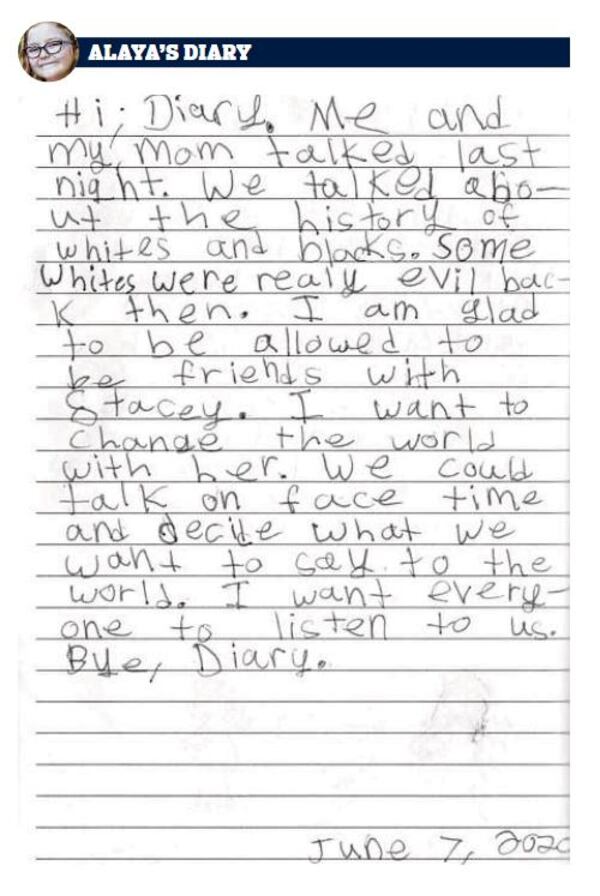 ALAYA'S DIARY
Hi, Diary. Me and
my, mom talked last
night. We talked abo-
ut the history of
whites and blacks. some
Whites were realy evil bac-
k then. I am glad
to be allowed to
be friends with
Stacey. I want to
change the world
with her. We could
talk on face time
and decide what we
want to say to the
world. I want every-
one to listen to us.
Bye, Diary.
June 7, 2020